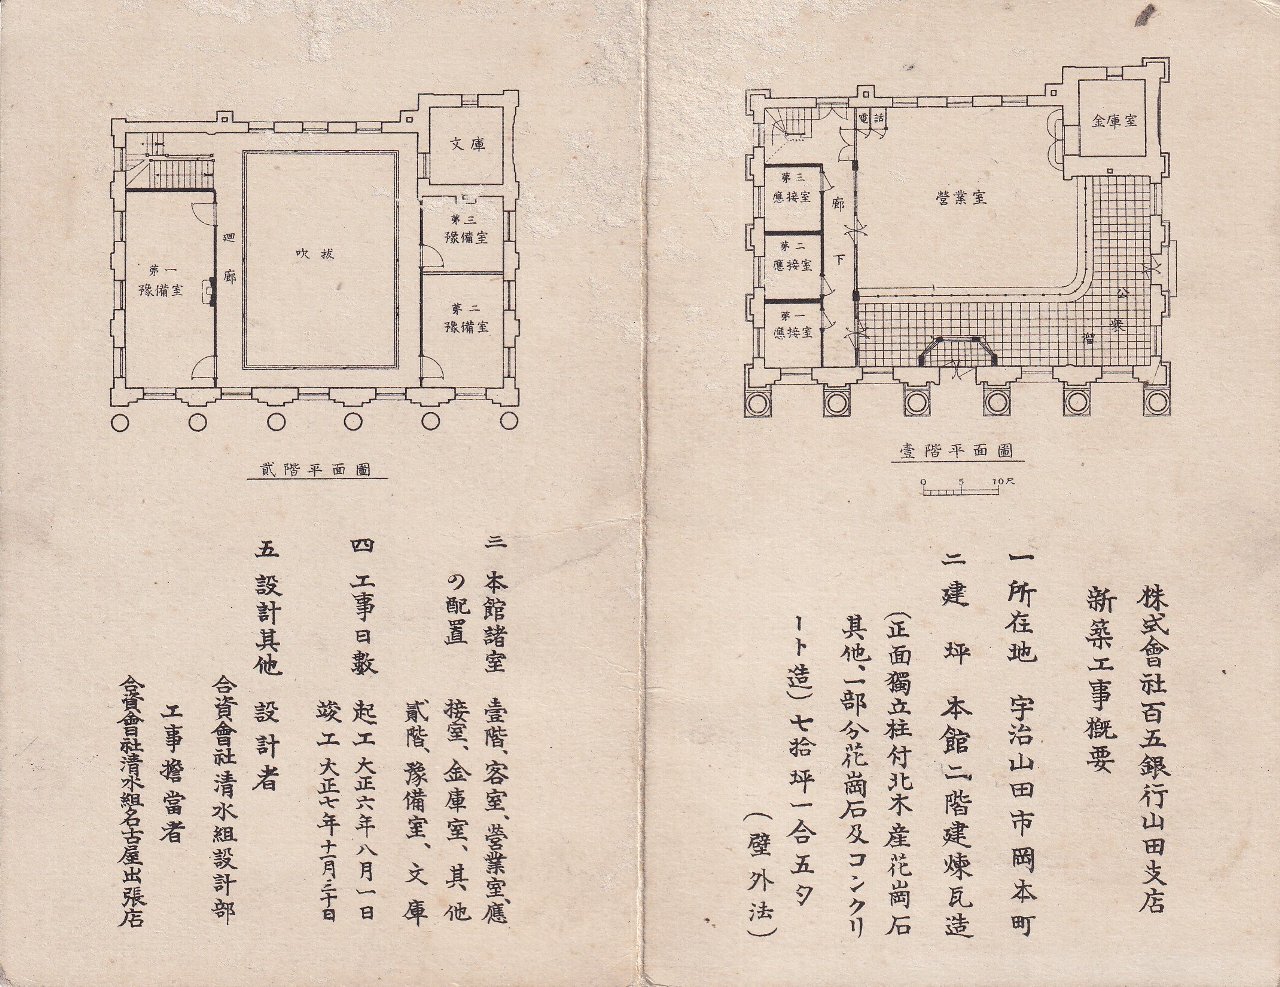 株式會社百五銀行山田支店
新築工事概要
一 所在地 宇治山田市岡本町
二 建坪 本館二階建煉瓦造
(正面獨立柱付北木產花崗石
其他、一部分花崗石及コンクリ
ート造)七拾坪一合五夕
(壁外法)
三 本館諸室 壹階、客室、營業室、應
の配置 接室、金庫室、其他
貳階、豫備室、文庫
四 工事日數 起工 大正六年八月一日
竣工 大正七年十一月三十日
五 設計其他 設計者
合資會社清水組設計部
工事擔當者
合資會社清水組名古屋出張店
壹階平面圖
0 5 10尺
金庫室
電話
營業室
第三
應接室
第二
應接室
第一
應接室
廊下
公衆溜
貳階平面圖
文庫
第三
豫備室
第二
豫備室
吹拔
廻廊
第一
豫備室